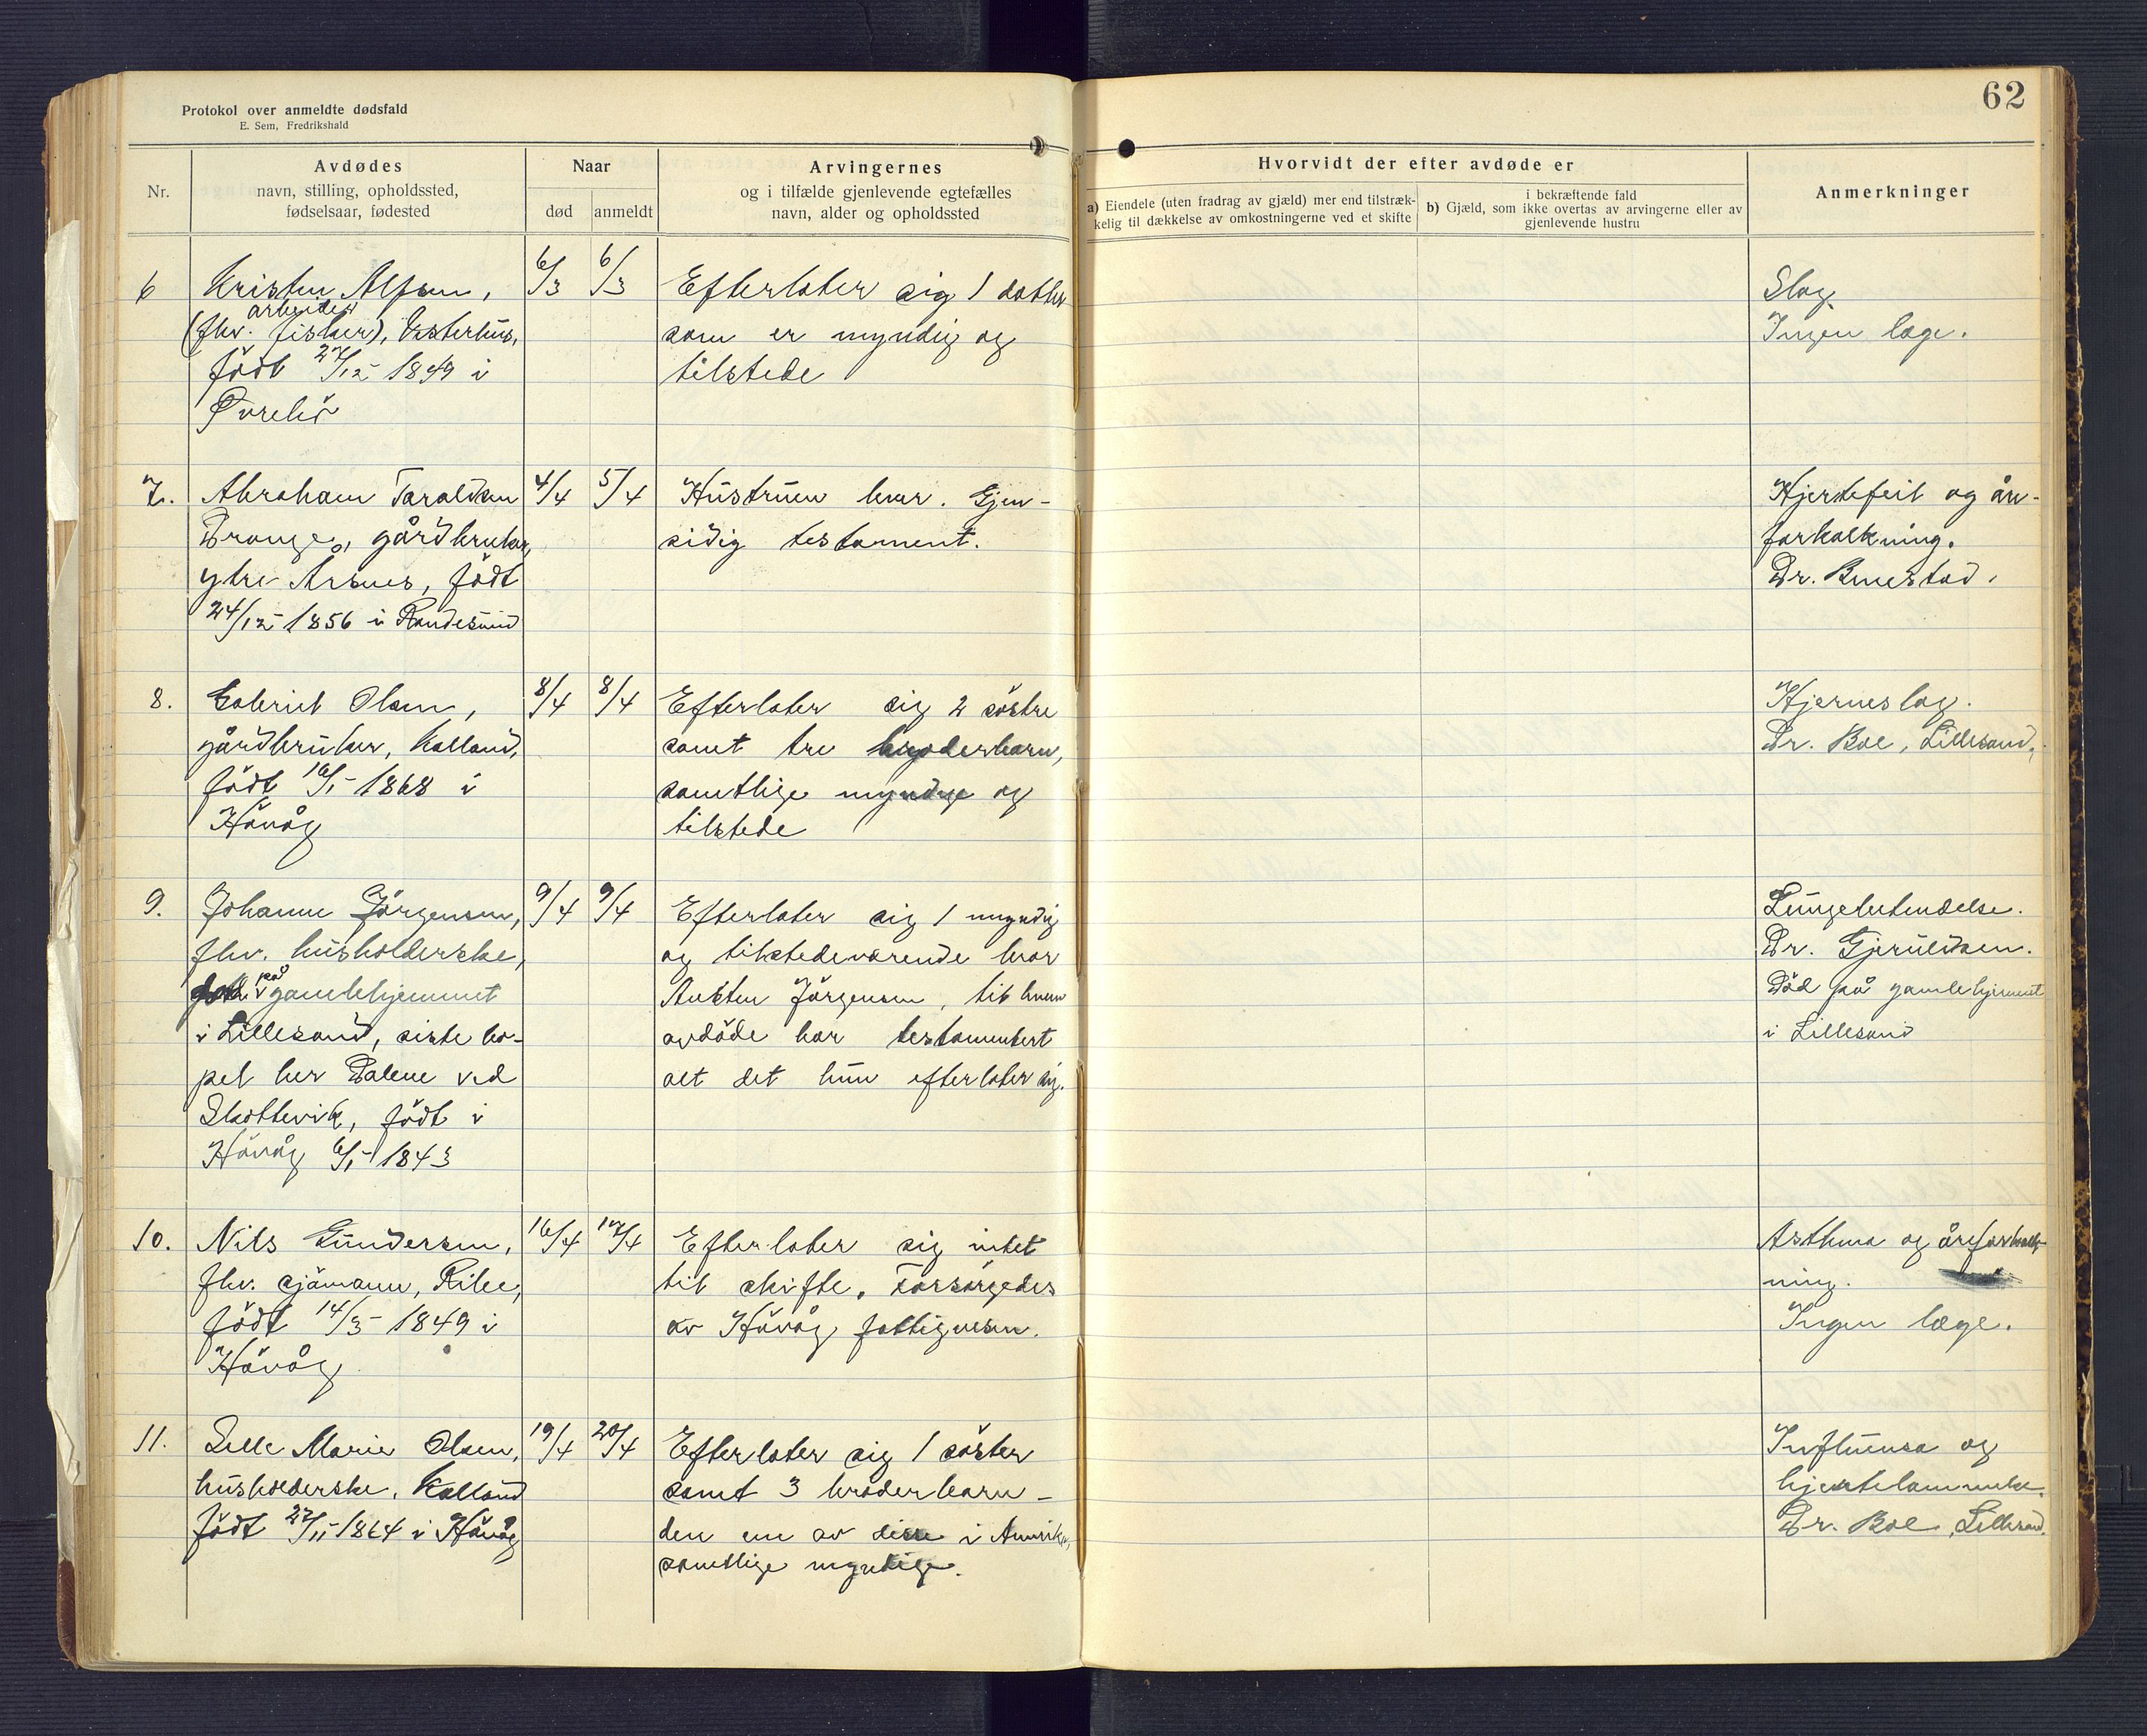 Protokol over anmeldte dødsfald
E. Sem, Fredrikshald
62
Nr.
Avdødes
navn, stilling, opholdssted,
fødselsaar, fødested
Naar
død
anmeldt
Arvingernes
og i tilfælde gjenlevende egtefælles
navn, alder og opholdssted
Hvorvidt der efter avdøde er
a) Eiendele (uten fradrag av gjæld) mer end tilstræk-
kelig til dækkelse av omkostningerne ved et skifte
i bekræftende fald
b) Gjæld, som ikke overtas av arvingerne eller av
gjenlevende hustru
Anmerkninger
6
Kristen Alfsen,
arbeider
(fhv. fisker), Vesterhus,
født 27/12 1849 i
Øvrebö
6/3
6/3
Efterlater sig 1 datter
som er myndig og
tilstede
Slag.
Ingen læge.
7.
Abraham Taraldsen
Drange, gårdbruker,
ytre Årsnes, født
24/12 1856 i Randesund
4/4
5/4
Hustruen lever. Gjen-
sidig testament.
Hjertefeil og åre-
forkalkning.
Dr.
8.
Gabriel Olsen,
gårdbruker, Kalland,
født 16/1 1868 i
Hövåg
8/4
8/4
Efterlater sig 2 söstre
samt tre broderbarn,
samtlige myndige og
tilstede
Hjerneslag.
Dr. Boe, Lillesand.
9.
Johanne Jörgensen,
fhv. husholderske,
på
gamlehjemmet
i Lillesand, siste bo-
pel her Dalene ved
Skottevik, født i
Hövåg 6/1 1843
9/4
9/4
Efterlater sig 1 myndig
og tilstedeværende bror
Austen Jörgensen, til hvem
avdöde har testamentert
alt det hun efterlater sig.
Lungebetendelse.
Dr. Gjeruldsen.
Död på gamlehjemmet
i Lillesand
10.
Nils Gundersen,
fhv. sjömann, Ribe,
født 14/3 1849 i
Hövåg
16/4
17/4
Efterlater sig intet
til skifte. Forsörgedes
av Hövåg fattigvesen.
Asthma og åreforkalk-
ning.
Ingen læge.
11.
Lelle Marie Olsen,
husholderske, Kalland
født 27/11 1864 i Hövåg
19/4
20/4
Efterlater sig 1 söster
samt 3 broderbarn -
den ene av disse i Amerika,
samtlige myndige.
Influensa og
hjertelammelse.
Dr. Boe, Lillesand.